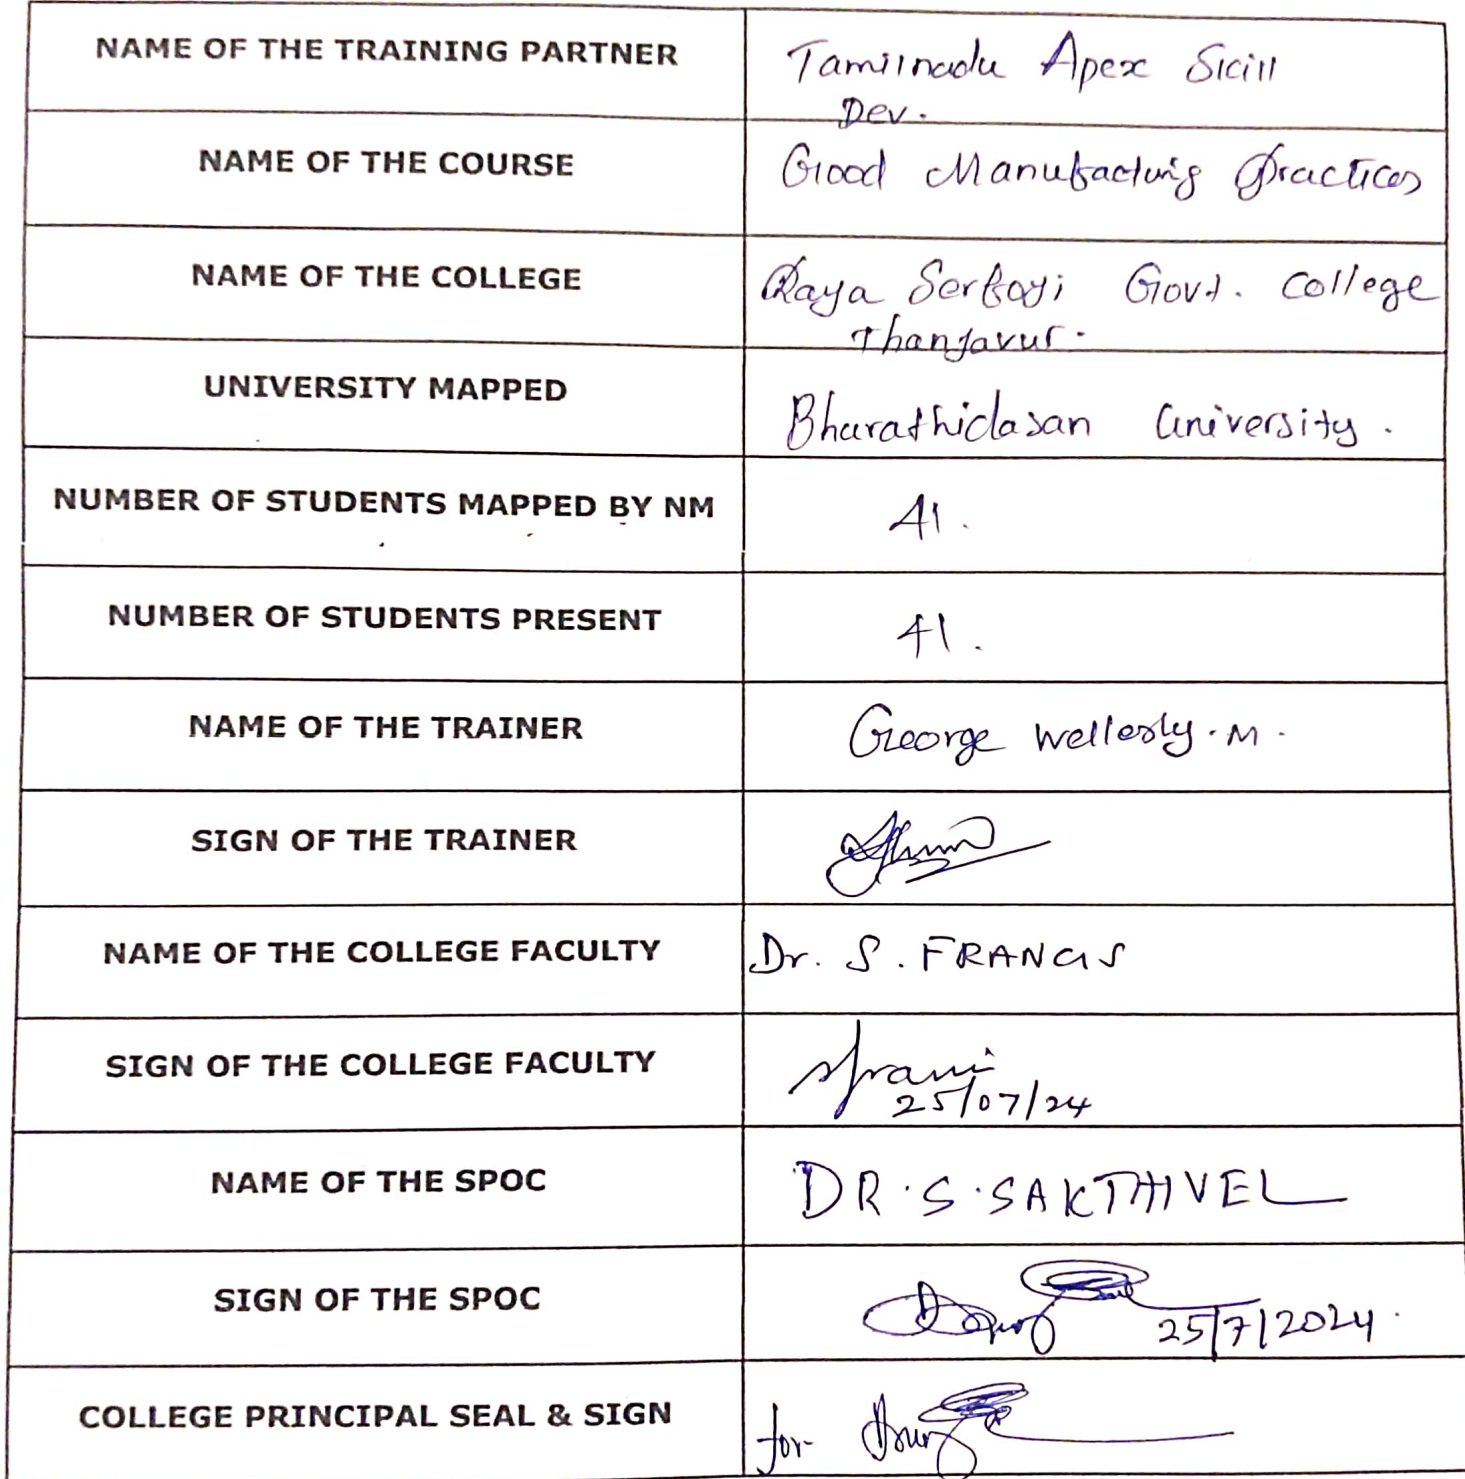 NAME OF THE TRAINING PARTNER
Tamilnadu Apex Skill
Dev.
NAME OF THE COURSE
Good Manufacturing Practices
NAME OF THE COLLEGE
Raya Serfoji Govt. College
Thanjavur.
UNIVERSITY MAPPED
Bharathidasan University.
NUMBER OF STUDENTS MAPPED BY NM
41.
NUMBER OF STUDENTS PRESENT
41.
NAME OF THE TRAINER
George Wellesly.M.
SIGN OF THE TRAINER
NAME OF THE COLLEGE FACULTY
Dr. S. FRANCIS
SIGN OF THE COLLEGE FACULTY
25/07/24
NAME OF THE SPOC
DR.S.SAKTHIVEL
SIGN OF THE SPOC
25/7/2024.
COLLEGE PRINCIPAL SEAL & SIGN
for